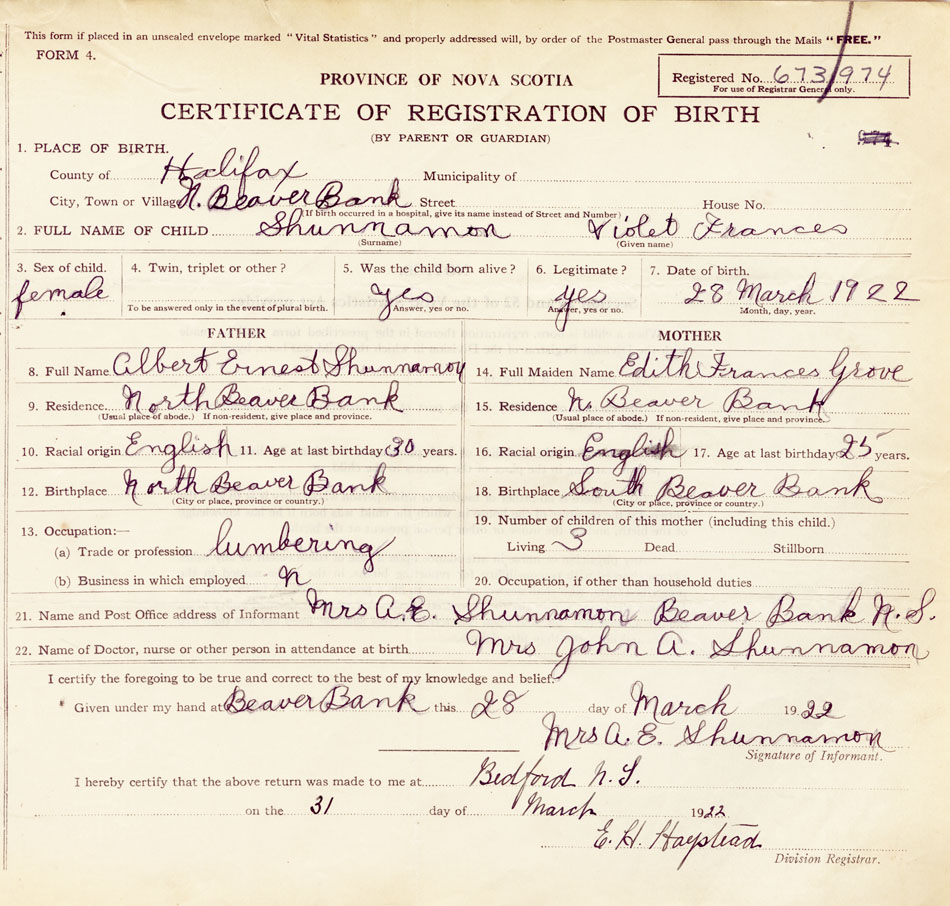 This form if placed in an unsealed envelope marked "Vital Statistics" and properly addressed will, by order of the Postmaster General pass through the Mails "FREE."
FORM 4.
PROVINCE OF NOVA SCOTIA
Registered No. 673/974
For use of Registrar General only.
CERTIFICATE OF REGISTRATION OF BIRTH
(BY PARENT OR GUARDIAN)
1. PLACE OF BIRTH.
County of Halifax Municipality of
City, Town or Village N. Beaver Bank Street House No.
(If birth occurred in a hospital, give its name instead of Street and Number)
2. FULL NAME OF CHILD Shunnamon Violet Frances
(Surname) (Given name)
3. Sex of child. 4. Twin, triplet or other? 5. Was the child born alive? 6. Legitimate? 7. Date of birth.
female yes yes 28 March 1922
To be answered only in the event of plural birth. Answer, yes or no. Answer, yes or no. Month, day, year.
FATHER MOTHER
8. Full Name Albert Ernest Shunnamon 14. Full Maiden Name Edith Frances Grove
9. Residence North Beaver Bank 15. Residence N. Beaver Bank
(Usual place of abode.) If non-resident, give place and province. (Usual place of abode.) If non-resident, give place and province.
10. Racial origin English 11. Age at last birthday 30 years. 16. Racial origin English 17. Age at last birthday 25 years.
12. Birthplace North Beaver Bank 18. Birthplace South Beaver Bank
(City or place, province or country.) (City or place, province or country.)
13. Occupation:— 19. Number of children of this mother (including this child.)
(a) Trade or profession lumbering Living 3 Dead Stillborn
(b) Business in which employed n 20. Occupation, if other than household duties
21. Name and Post Office address of Informant Mrs A. E. Shunnamon Beaver Bank N. S.
22. Name of Doctor, nurse or other person in attendance at birth Mrs John A. Shunnamon
I certify the foregoing to be true and correct to the best of my knowledge and belief.
Given under my hand at Beaver Bank this 28 day of March 1922
Mrs A. E. Shunnamon
Signature of Informant.
I hereby certify that the above return was made to me at Bedford N. S.
on the 31 day of March 1922
E. H. Haystead
Division Registrar.